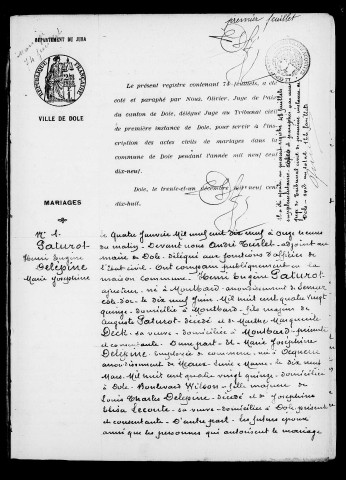 premier feuillet
DÉPARTEMENT DU JURA
RÉPUBLIQUE FRANÇAISE
VILLE DE DOLE
Le présent registre contenant 74 feuillets, a été
coté et paraphé par Nous, Olivier, Juge de Paix
du canton de Dole, délégué Juge au Tribunal civil
de première instance de Dole, pour servir à l'ins-
cription des actes civils de mariages dans la
commune de Dole pendant l'année mil neuf cent
dix-neuf.
Dole, le trente-et-un décembre mil neuf cent
dix-huit.
MARIAGES
N° 1.
Paturot
Henri Eugène
Delépine
Marie Joséphine
Le quatre Janvier Mil neuf cent dix neuf à onze heures
du matin - Devant nous André adjoint au
maire de Dole - délégué aux fonctions d'officier de
l'état civil - Ont comparu publiquement en la
maison commune - Henri Eugène Paturot -
ajusteur - né à Montbard - arrondissement de Semur
Côte d'or - le dix neuf Juin Mil huit cent quatre vingt
quinze - domicilié à Montbard - fils majeur de
Auguste Paturot - décédé et de Marthe Marguerite
Beck - sa veuve - domiciliée à Montbard - présente
et consentante - D'une part - Et Marie Joséphine
Delépine - employée de commerce - née à
arrondissement de Meaux - Seine et Marne - le dix neuf
Mars Mil huit cent quatre vingt quinze - domiciliée
à Dole - Boulevard Wilson - fille majeure de
Louis Charles Delépine - décédé et de Joséphine
Elisa Lecomte - sa veuve - domiciliée à Dole - présente
et consentante - D'autre part - Les futurs époux
ainsi que les personnes qui autorisent le mariage